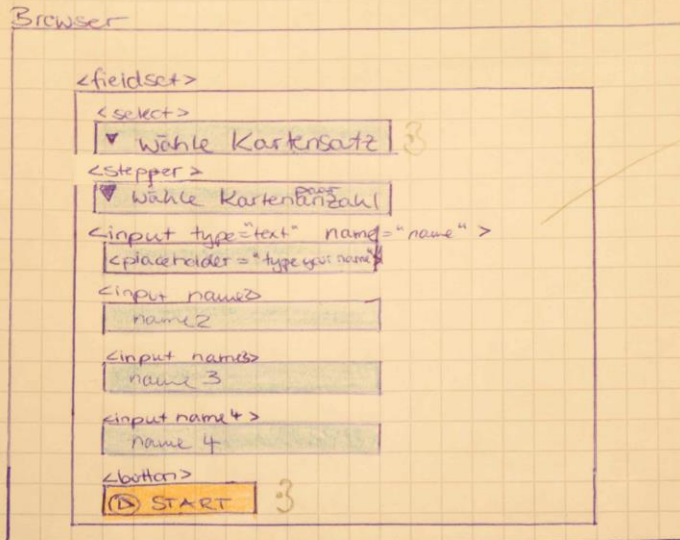 Browser
<fieldset>
<select>
▼ Wähle Kartensatz 3
<stepper>
▼ Wähle Kartenpaaranzahl
<input type="text" name="name" >
<placeholder = "type your name">
<input name2>
name2
<input name3>
name 3
<input name4>
name 4
<button>
START 3